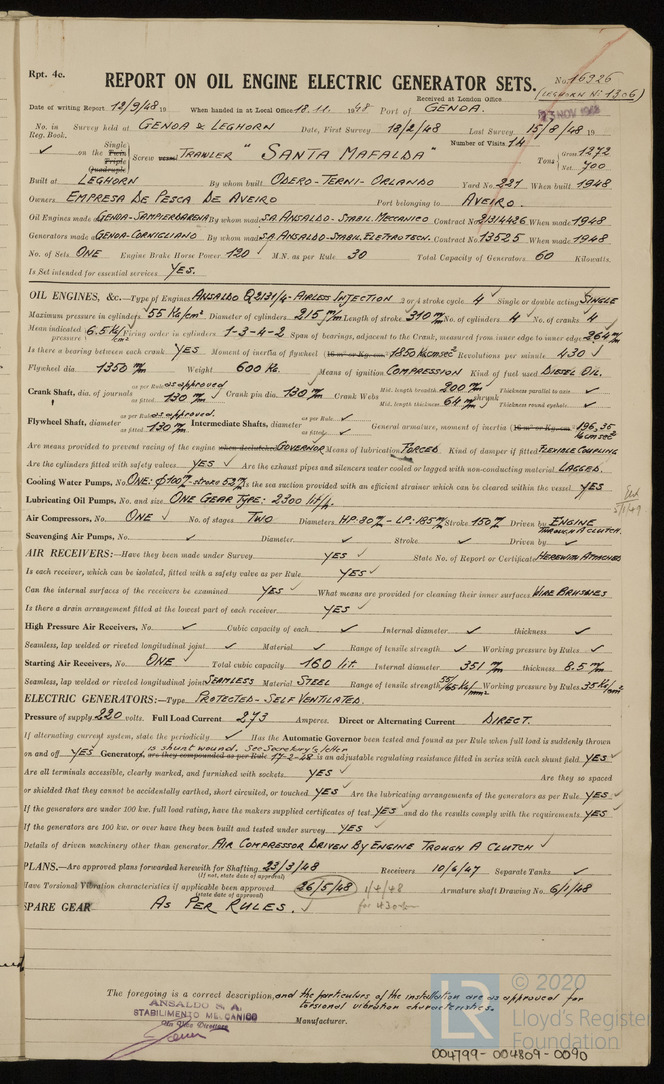 Rpt. 4c.
REPORT ON OIL ENGINE ELECTRIC GENERATOR SETS.
No. 16926
(LEGHORN No 1306)
Received at London Office
23 NOV 1948
Date of writing Report 12/9/48 19 When handed in at Local Office 18.11. 1948 Port of GENOA.
No. in Reg. Book. Survey held at GENOA & LEGHORN Date, First Survey 18/2/48 Last Survey 15/8/48 19
Number of Visits 14
✓ on the Single Twin Triple Quadruple Screw vessel TRAWLER "SANTA MAFALDA" Tons Gross 1272 Net 700
Built at LEGHORN By whom built ODERO-TERNI-ORLANDO Yard No. 221 When built 1948
Owners EMPRESA DE PESCA DE AVEIRO Port belonging to AVEIRO.
Oil Engines made at GENOA-SAMPIERDARENA By whom made S.A. ANSALDO-STABIL. MECCANICO Contract No. 21314426 When made 1948
Generators made at GENOA-CORNIGLIANO By whom made S.A. ANSALDO-STABIL. ELETTROTECN. Contract No. 13525 When made 1948
No. of Sets ONE Engine Brake Horse Power 120 M.N. as per Rule 30 Total Capacity of Generators 60 Kilowatts.
Is Set intended for essential services YES.
OIL ENGINES, &c.—Type of Engines ANSALDO Q 2131/4-AIRLESS INJECTION 2 or 4 stroke cycle 4 Single or double acting SINGLE
Maximum pressure in cylinders 55 Kg/cm² Diameter of cylinders 215 m/m Length of stroke 310 m/m No. of cylinders 4 No. of cranks 4
Mean indicated pressure 6.5 Kg/cm² Firing order in cylinders 1-3-4-2 Span of bearings, adjacent to the Crank, measured from inner edge to inner edge 264 m/m
Is there a bearing between each crank YES Moment of inertia of flywheel (16 m² or Kg.cm.²) 1850 Kgcmsec² Revolutions per minute 430 ✓
Flywheel dia. 1350 m/m Weight 600 Kg. Means of ignition COMPRESSION Kind of fuel used DIESEL OIL.
Crank Shaft, dia. of journals as per Rule as approved as fitted 130 m/m Crank pin dia. 130 m/m Crank Webs Mid. length breadth 200 m/m Mid. length thickness 64 m/m shrunk Thickness parallel to axis ✓ Thickness round eyehole ✓
Flywheel Shaft, diameter as per Rule as approved. as fitted 130 m/m Intermediate Shafts, diameter as per Rule ✓ as fitted ✓ General armature, moment of inertia (16 m² or Kg.cm.²) 196,35 Kgcmsec²
Are means provided to prevent racing of the engine when declutched GOVERNOR Means of lubrication FORCED Kind of damper if fitted FLEXIBLE COUPLING
Are the cylinders fitted with safety valves YES ✓ Are the exhaust pipes and silencers water cooled or lagged with non-conducting material LAGGED.
Cooling Water Pumps, No. ONE: φ 100 m/m-stroke 52 m/m Is the sea suction provided with an efficient strainer which can be cleared within the vessel YES ✓
Lubricating Oil Pumps, No. and size ONE GEAR TYPE: 2300 lit/h.
5/1/49
Air Compressors, No. ONE ✓ No. of stages TWO Diameters HP: 80 m/m - LP: 185 m/m Stroke 150 m/m Driven by ENGINE THROUGH A CLUTCH.
Scavenging Air Pumps, No. ✓ Diameter ✓ Stroke ✓ Driven by ✓
AIR RECEIVERS:—Have they been made under Survey YES ✓ State No. of Report or Certificate HEREWITH ATTACHED
Is each receiver, which can be isolated, fitted with a safety valve as per Rule YES ✓
Can the internal surfaces of the receivers be examined YES ✓ What means are provided for cleaning their inner surfaces WIRE BRUSHES
Is there a drain arrangement fitted at the lowest part of each receiver YES ✓
High Pressure Air Receivers, No. ✓ Cubic capacity of each ✓ Internal diameter ✓ thickness ✓
Seamless, lap welded or riveted longitudinal joint ✓ Material ✓ Range of tensile strength ✓ Working pressure by Rules ✓
Starting Air Receivers, No. ONE ✓ Total cubic capacity 160 lit. Internal diameter 351 m/m thickness 8.5 m/m
Seamless, lap welded or riveted longitudinal joint SEAMLESS Material STEEL Range of tensile strength 55/65 Kg/mm² Working pressure by Rules 35 Kg/cm²
ELECTRIC GENERATORS:—Type PROTECTED-SELF VENTILATED.
Pressure of supply 220 volts. Full Load Current 273 Amperes. Direct or Alternating Current DIRECT.
If alternating current system, state the periodicity ✓ Has the Automatic Governor been tested and found as per Rule when full load is suddenly thrown
is shunt wound. See Secretary's letter
on and off YES ✓ Generators, are they compounded as per Rule 17-2-48 is an adjustable regulating resistance fitted in series with each shunt field YES ✓
Are all terminals accessible, clearly marked, and furnished with sockets YES ✓ Are they so spaced
or shielded that they cannot be accidentally earthed, short circuited, or touched YES ✓ Are the lubricating arrangements of the generators as per Rule YES ✓
If the generators are under 100 kw. full load rating, have the makers supplied certificates of test YES ✓ and do the results comply with the requirements YES ✓
If the generators are 100 kw. or over have they been built and tested under survey YES ✓
Details of driven machinery other than generator AIR COMPRESSOR DRIVEN BY ENGINE TROUGH A CLUTCH ✓
PLANS.—Are approved plans forwarded herewith for Shafting 23/3/48 Receivers 10/6/47 Separate Tanks ✓
(If not, state date of approval)
Have Torsional Vibration characteristics if applicable been approved 26/5/48 1/4/48 Armature shaft Drawing No. 6/1/48
(state date of approval)
for 430
SPARE GEAR AS PER RULES. ✓
The foregoing is a correct description, and the particulars of the installation are as approved for
torsional vibration characteristics.
ANSALDO S.A.
STABILIMENTO MECCANICO
Manufacturer.
© 2020
LR
Lloyd's Register
Foundation
004799-004809-0090